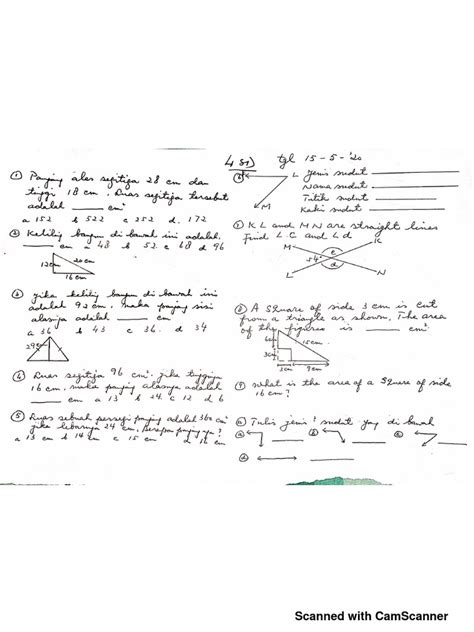 4 SD tgl 15-5-'20
① Panjang alas segitiga 28 cm dan
tinggi 18 cm. Luas segitiga tersebut
adalah ___ cm²
a 152 b 522 c 252 d. 172
② Keliling bangun di bawah ini adalah.
___ cm a 48 b 52 c 68 d 96
12cm 20cm
16cm
③ jika keliling bangun di bawah ini
adalah 92 cm. maka panjang sisi
alasnya adalah ___ cm
a 36 b 43 c 36. d 34
④ Luas segitiga 96 cm². jika tingginya
16 cm, maka panjang alasnya adalah
___ cm a 13 b 24 c 12 d 6
⑤ Luas sebuah persegi panjang adalah 360 cm²
jika lebarnya 24 cm, berapa panjangnya?
a 13 cm b 14 cm c 15 cm d 16 cm
L jenis sudut
Nama sudut
M Titik sudut
Kaki sudut
KL and MN are straight lines
Find ∠C and ∠d
M K
54° c
d
L N
⑧ A square of side 3 cm is cut
from a triangle as shown. The area
of the figures is ___ cm²
15cm
3cm
3cm 9cm
⑨ what is the area of a square of side
16 cm?
Tulis jenis² sudut yang di bawah
a b c
d
Scanned with CamScanner